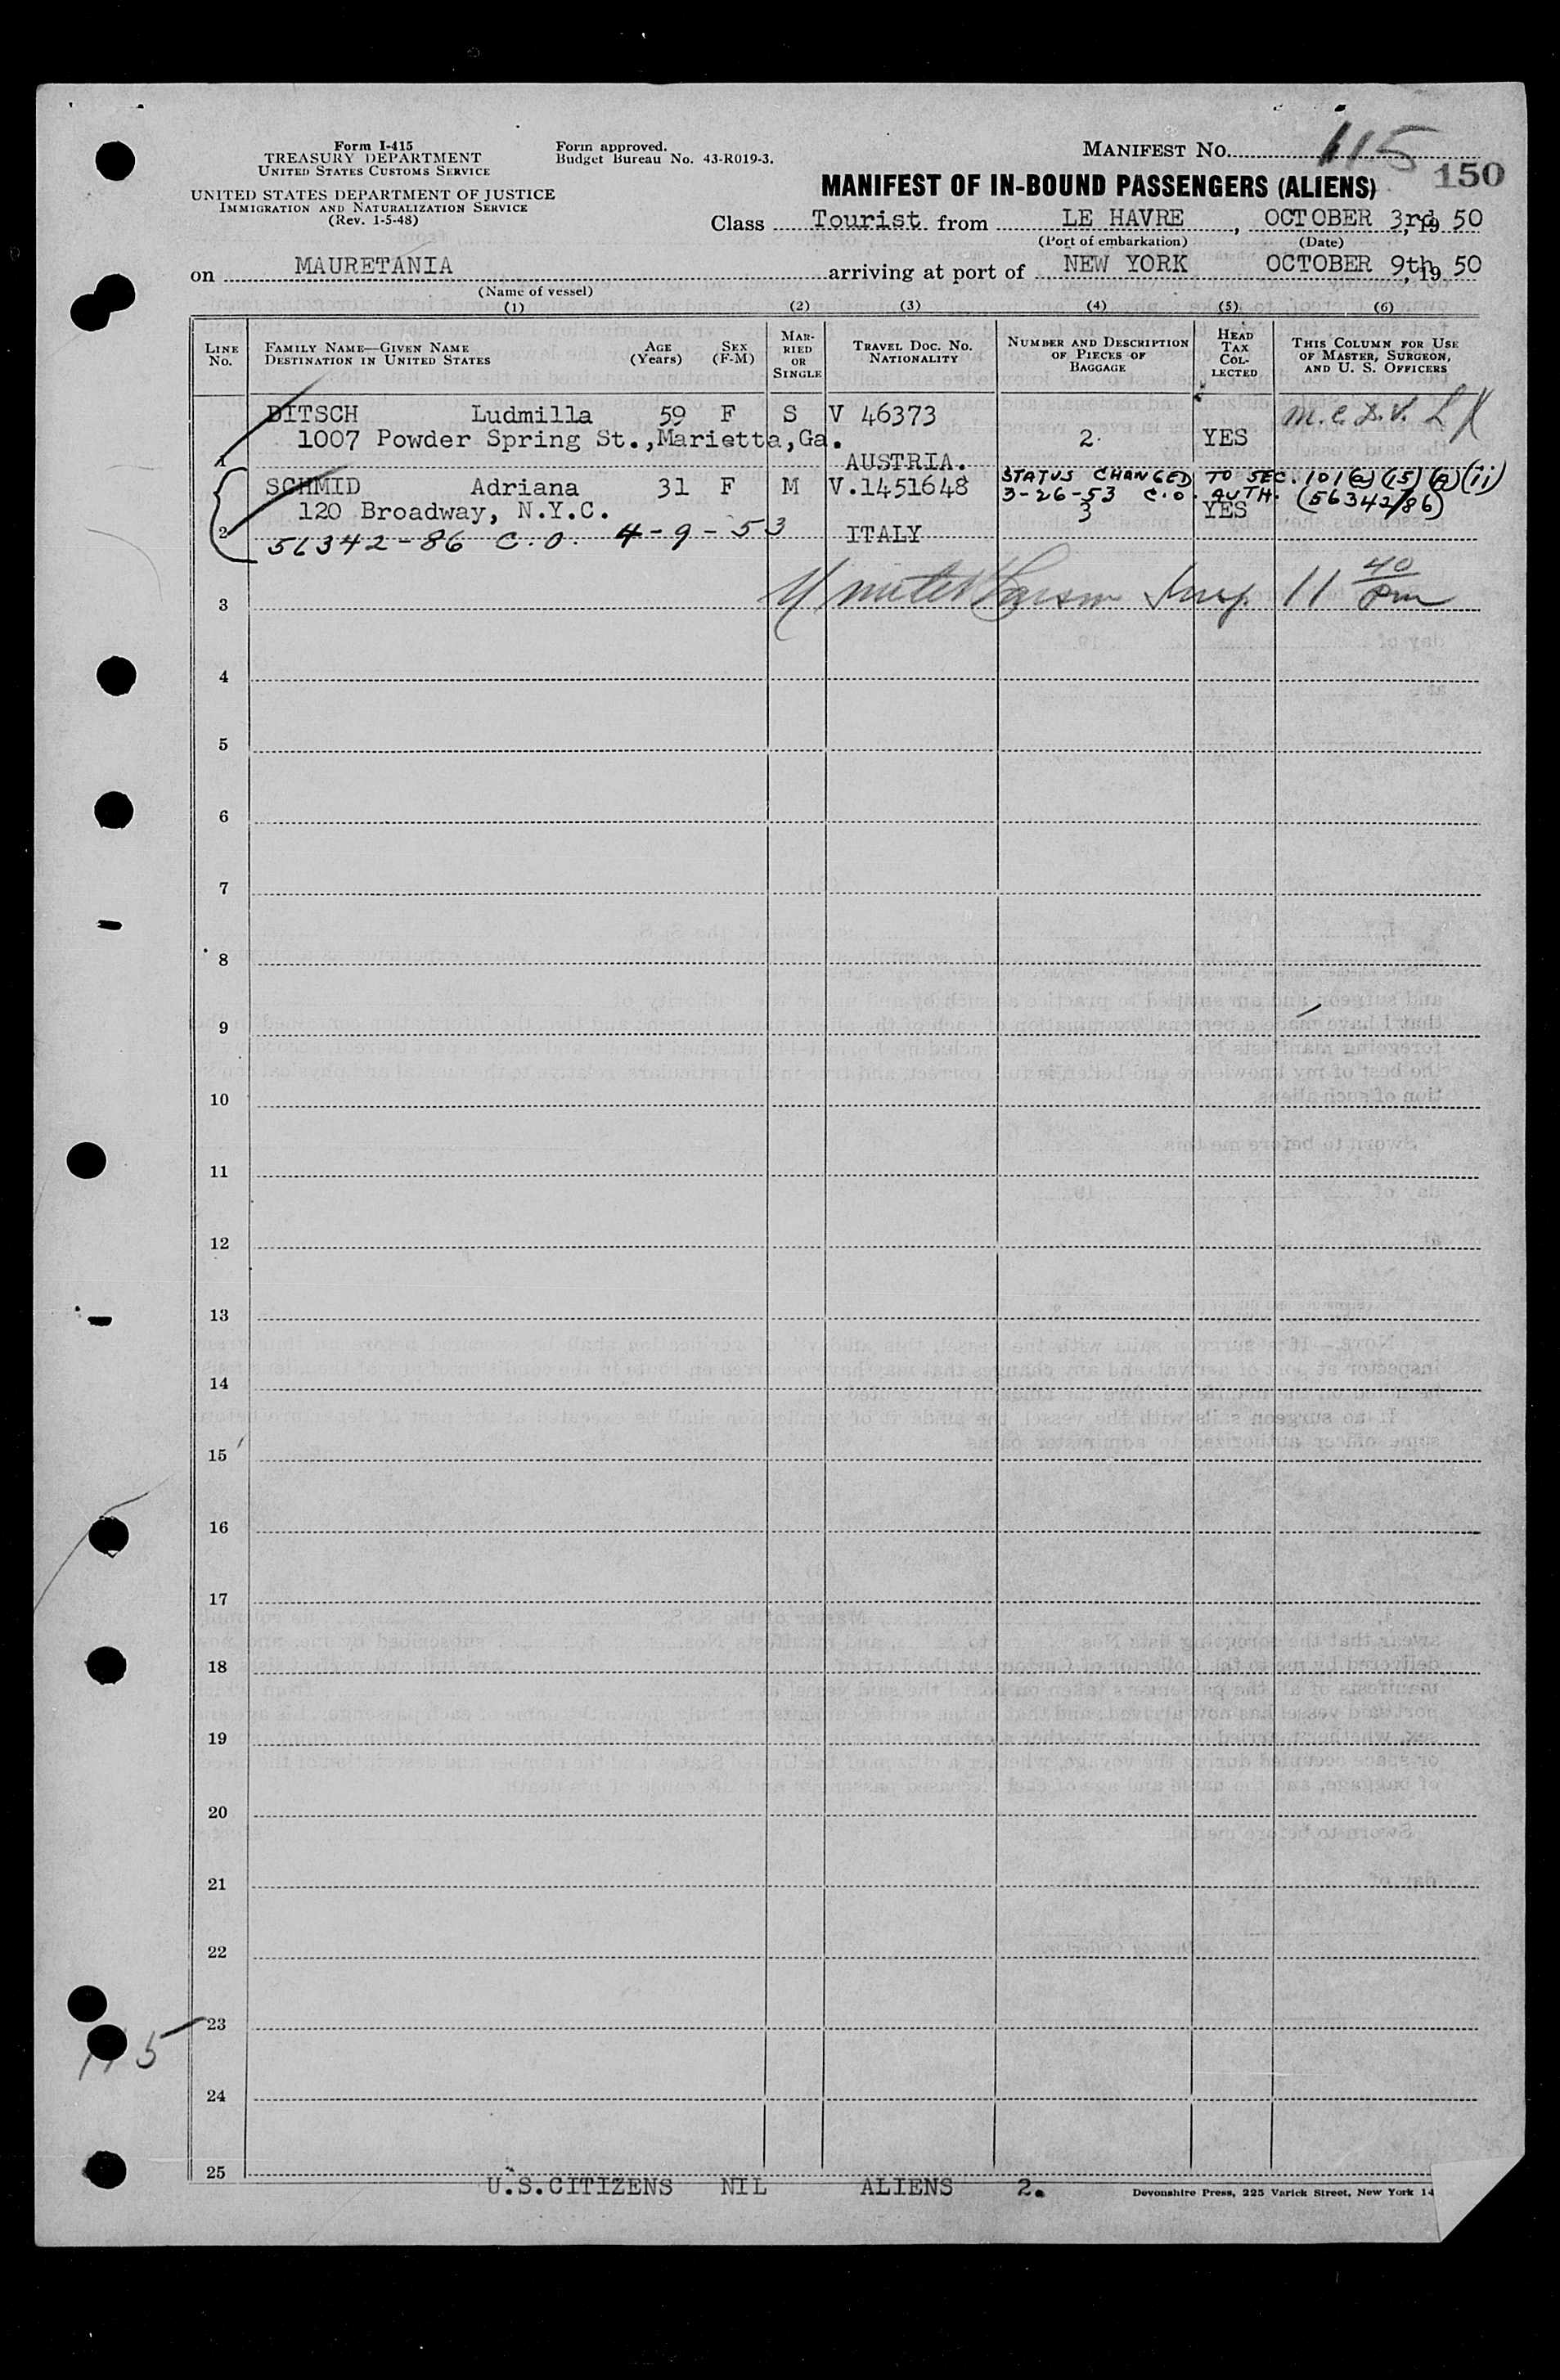 Form I-415
TREASURY DEPARTMENT
UNITED STATES CUSTOMS SERVICE
UNITED STATES DEPARTMENT OF JUSTICE
IMMIGRATION AND NATURALIZATION SERVICE
(Rev. 1-5-48)
Form approved.
Budget Bureau No. 43-R019-3.
MANIFEST NO. 115
150
MANIFEST OF IN-BOUND PASSENGERS (ALIENS)
Class Tourist from LE HAVRE, OCTOBER 3rd, 19 50
(Port of embarkation) (Date)
on MAURETANIA arriving at port of NEW YORK OCTOBER 9th, 19 50
(Name of vessel)
(1) (2) (3) (4) (5) (6)
LINE NO.
FAMILY NAME—GIVEN NAME
DESTINATION IN UNITED STATES
AGE (Years)
SEX (F-M)
MARRIED OR SINGLE
TRAVEL DOC. NO.
NATIONALITY
NUMBER AND DESCRIPTION OF PIECES OF BAGGAGE
HEAD TAX COLLECTED
THIS COLUMN FOR USE OF MASTER, SURGEON, AND U. S. OFFICERS
DITSCH Ludmilla 59 F S V 46373
1007 Powder Spring St.,Marietta,Ga. 2. YES
1 AUSTRIA.
SCHMID Adriana 31 F M V.1451648 STATUS CHANGED TO SEC. 101(a)(15)(A)(ii)
3-26-53 C.O. AUTH. (56342/86)
120 Broadway, N.Y.C. 3 YES
2 ITALY
56342-86 C.O. 4-9-53
3 11 40 pm
4
5
6
7
8
9
10
11
12
13
14
15
16
17
18
19
20
21
22
23
24
25
U.S.CITIZENS NIL ALIENS 2.
Devonshire Press, 225 Varick Street, New York 14